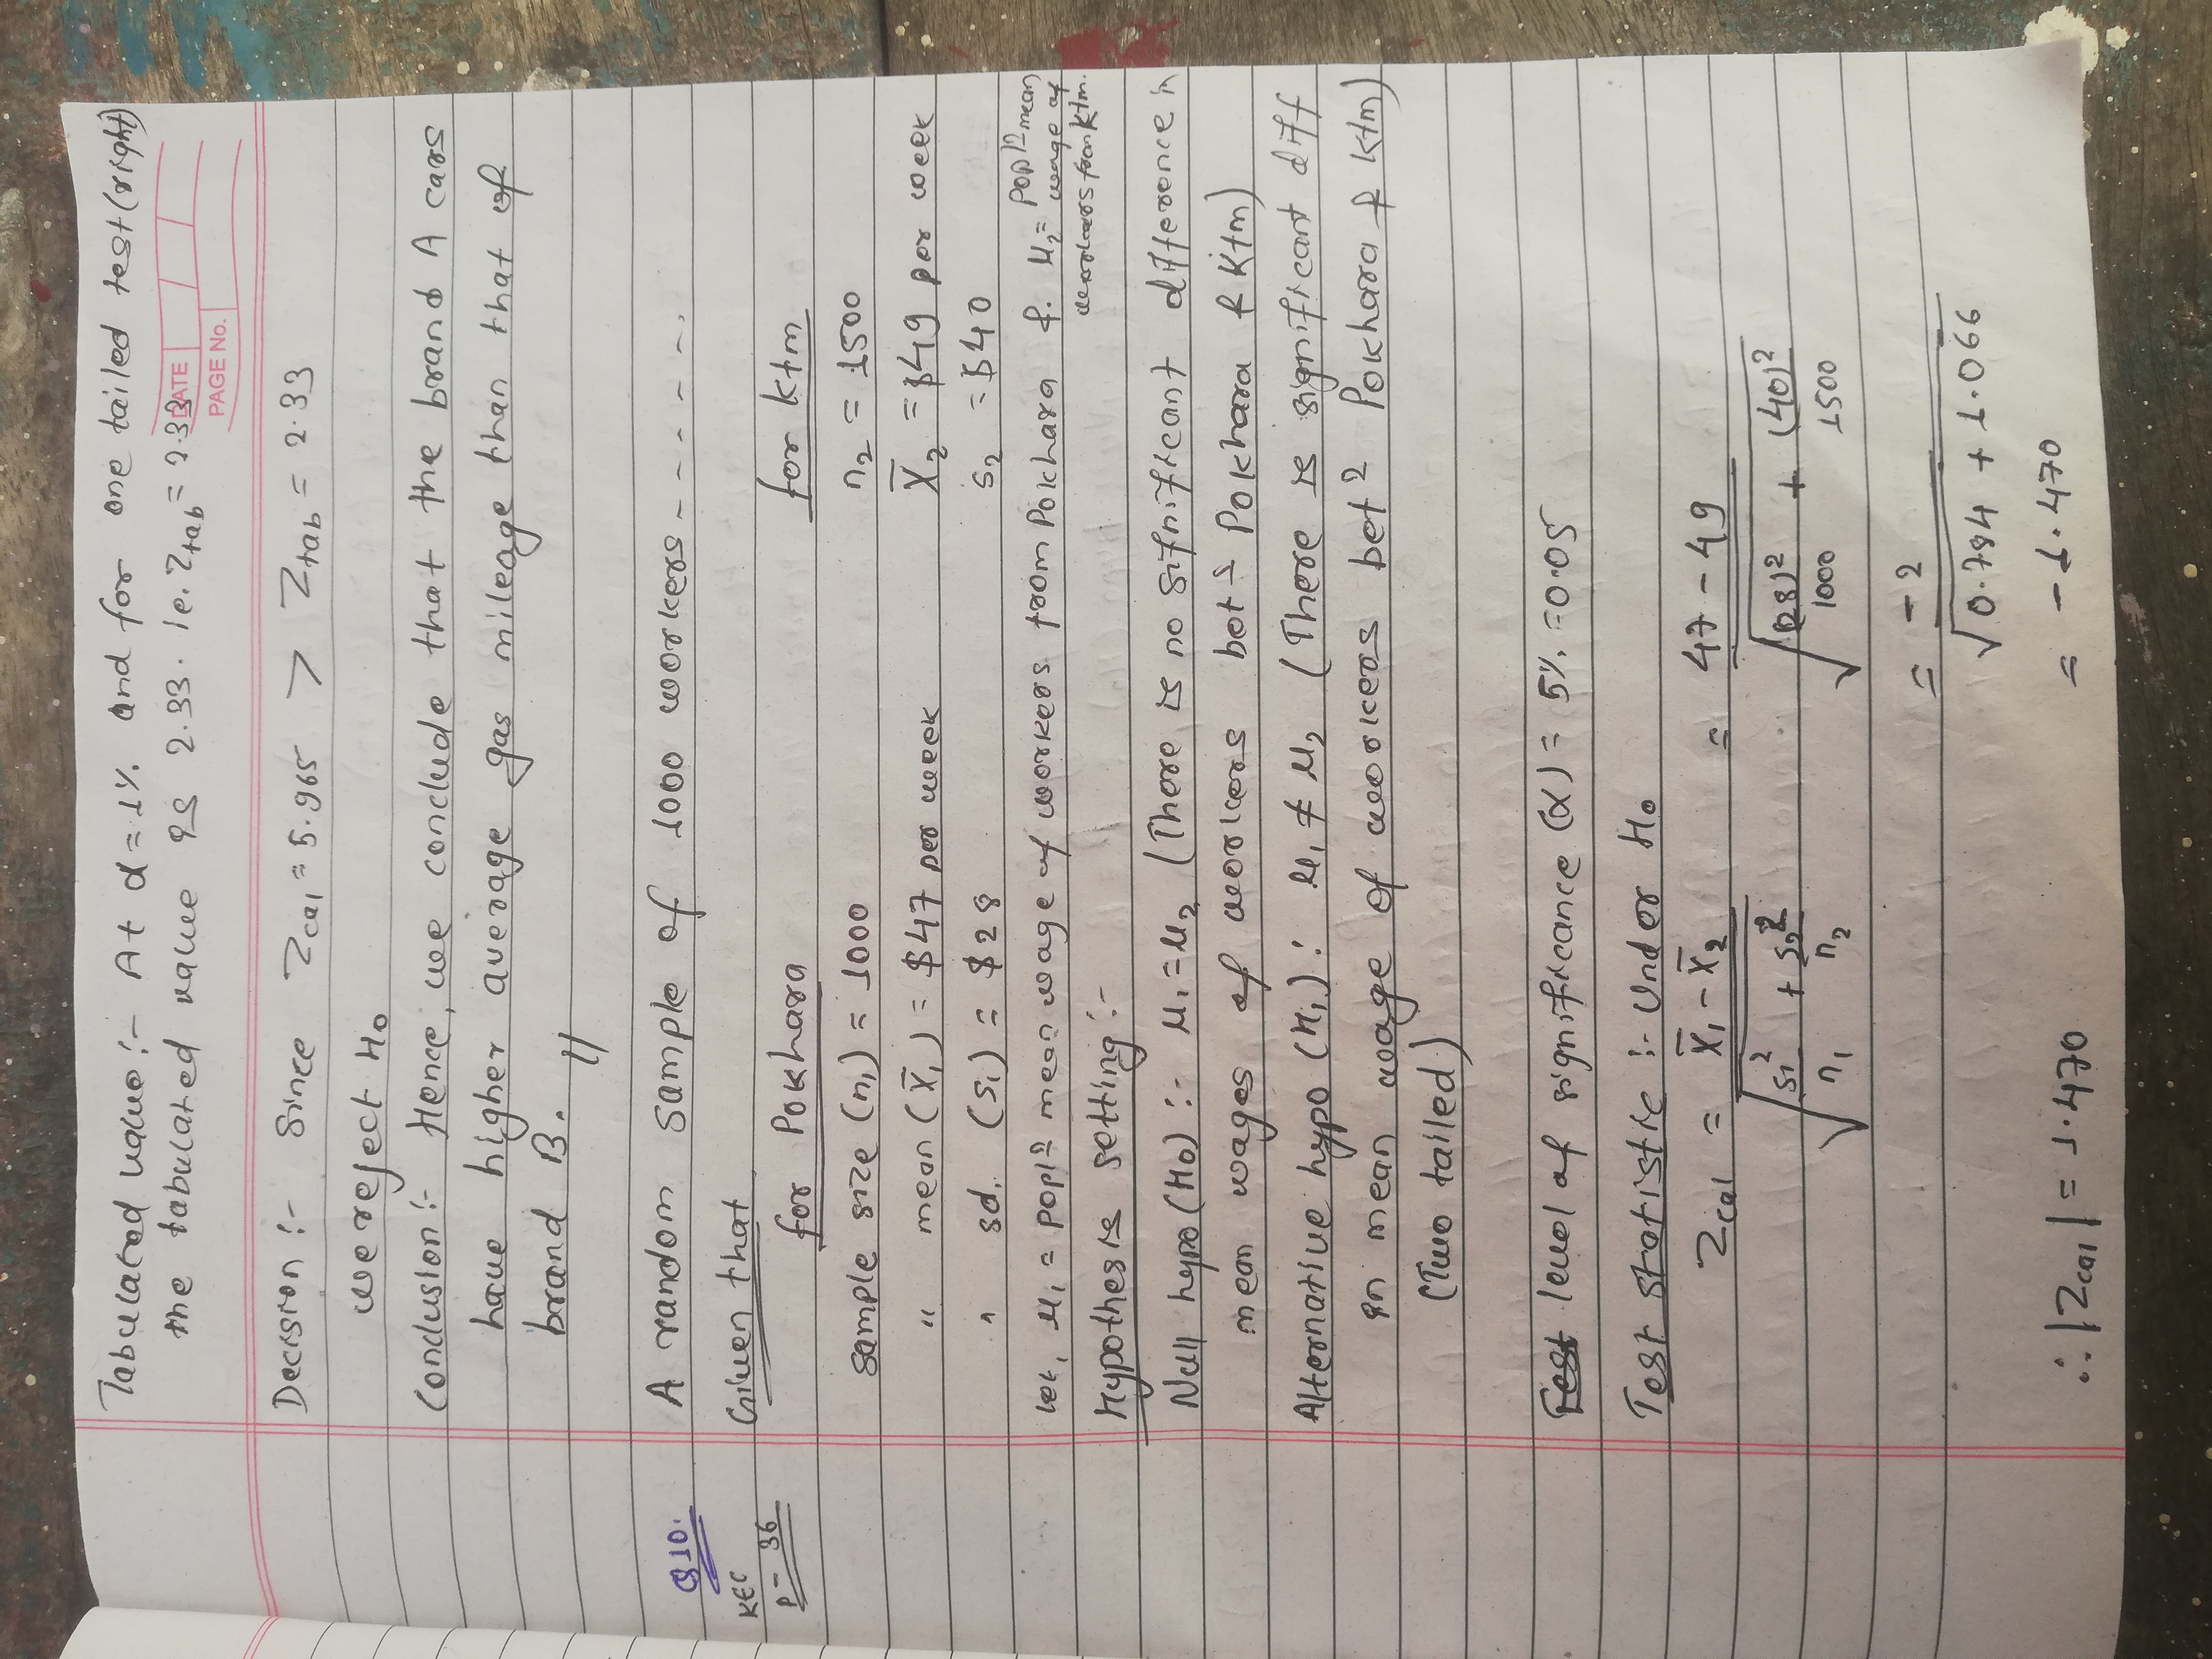 Tabulated value :- At α = 1%. and for one tailed test (right)
the tabulated value is 2.33. ie. Ztab = 2.33
DATE
PAGE No.
Decision :- Since Zcal = 5.965 > Ztab = 2.33
we reject H₀
Conclusion :- Hence, we conclude that the brand A cars
have higher average gas mileage than that of
brand B. //
Q10. A random sample of 1000 workers - - - - - -.
KEC
P- 36
Given that
for Pokhara for Ktm
sample size (n₁) = 1000 n₂ = 1500
" mean (X̄₁) = $47 per week X̄₂ = $49 per week
" sd. (s₁) = $28 s₂ = $40
let, μ₁ = poplⁿ mean wage of workers from Pokhara & μ₂ = poplⁿ mean
wage of
workers from Ktm.
Hypothesis setting :-
Null hypo (H₀) :- μ₁ = μ₂ (There is no sifnificant difference in
mean wages of workers betⁿ Pokhara & Ktm)
Alternative hypo (H₁) : μ₁ ≠ μ₂ (There is significant diff
in mean wage of workers betⁿ Pokhara & Ktm)
(Two tailed)
level of significance (α) = 5%. = 0.05
Test statistic :- Under H₀
Zcal = X̄₁ - X̄₂ / √(s₁²/n₁ + s₂²/n₂) = 47 - 49 / √((28)²/1000 + (40)²/1500)
= -2 / √(0.784 + 1.066)
∴ |Zcal| = 1.470 = -1.470